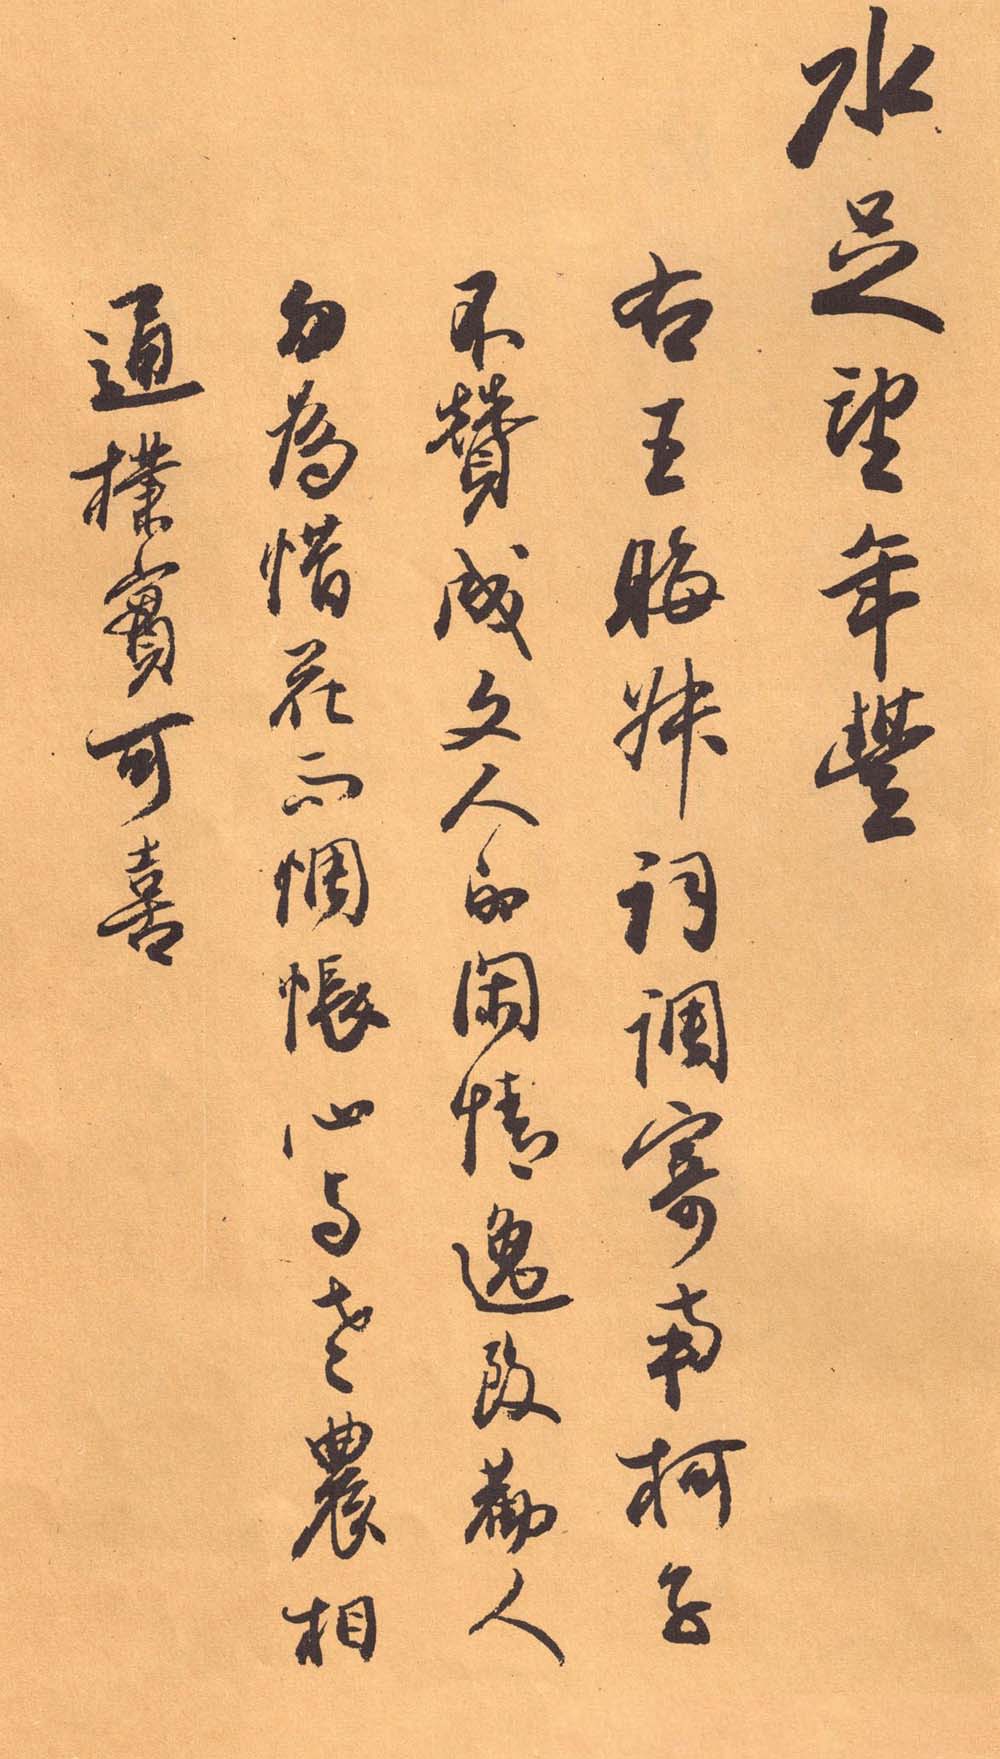 水足望年豐
右王晦叔词调寄南柯子
不贊成文人的閑情逸致勸人
勿為惜花而惆悵心与老農相
通樸實可喜